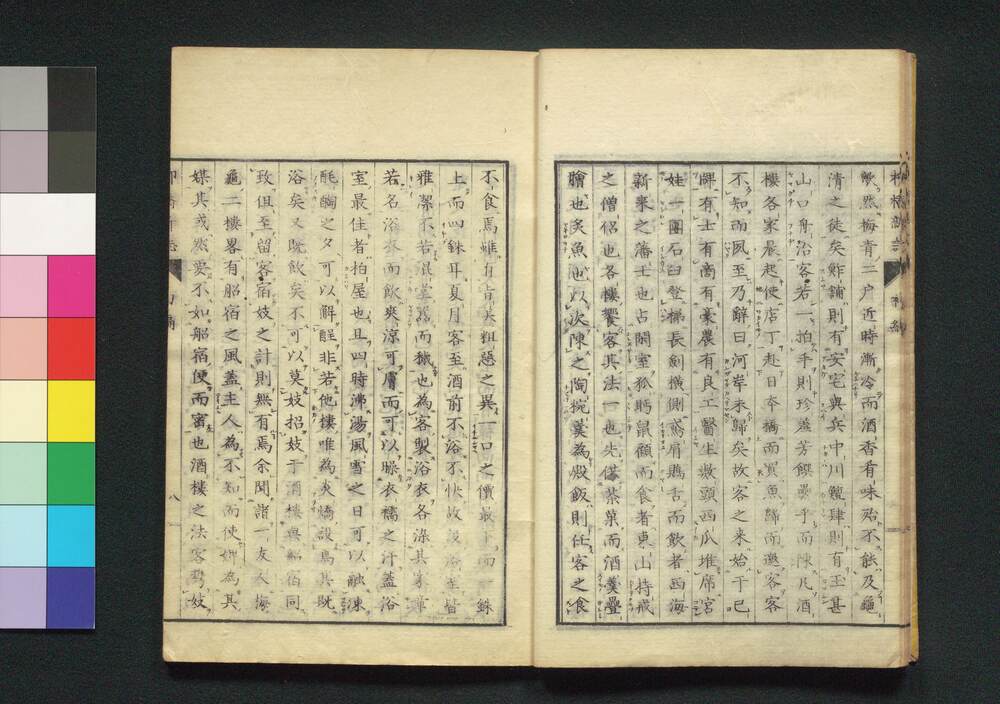 歟然梅青二戸近時漸冷而酒香肴味殆不能及龜
清之徒矣鮓舗則有安宅與兵中川鰻肆則有玉甚
山口舟治客若一拍手則珍羞芳饌疊乎而陳凡酒
樓各家晨起使店丁赴日本橋而買魚歸而邀客客
不知而夙至乃辭曰河岸未歸矣故客之来始于巳
牌有士有商有豪農有良工醫生㪣頭西瓜堆席宮
娃一團石臼登梯長劍横側鳶肩鴃舌而飲者西海
新来之藩士也占閑室狐鳴鼠顧而食者東山持戒
之僧侶也各樓饗客其法一也先偆茶菓而酒羹疊
膾也炙魚也以次陳之陶椀羹為殿飯則任客之食
不食焉雖有旨美粗惡之異一口之價最下而一銖
上而四銖耳夏月客至酒前不浴不快故設浴室皆
雅潔不若混堂 而穢也為客製浴衣各染其家章
若名浴 而飲爽涼可膚而可以晞衣襦之汗蓋浴
室最佳者柏屋也且四時沸湯風雪之日可以融凍
酕醄之夕可以解酲非若他樓唯為炎燠設焉其既
浴矣又既飲矣不可以莫妓招妓于酒樓與船宿同
致但至留客宿妓之計則無有焉余聞諸一友人梅
龜二樓畧有船宿之風蓋主人為不知而使婢為其
媒其或然要不如船宿便而密也酒樓之法客 妓
八